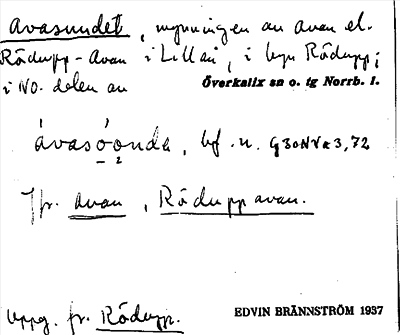 Avasundet, mynningen av avan el.
Rödupp-Avan i Lillån, i byn Rödupp;
i NO. delen av Överkalix sn o. tg Norrb. l.
ávasó̱onde, bf. n. G30NVa3,72
2
Jfr. avan, Röduppavan.
Uppg. fr. Rödupp. EDVIN BRÄNNSTRÖM 1937